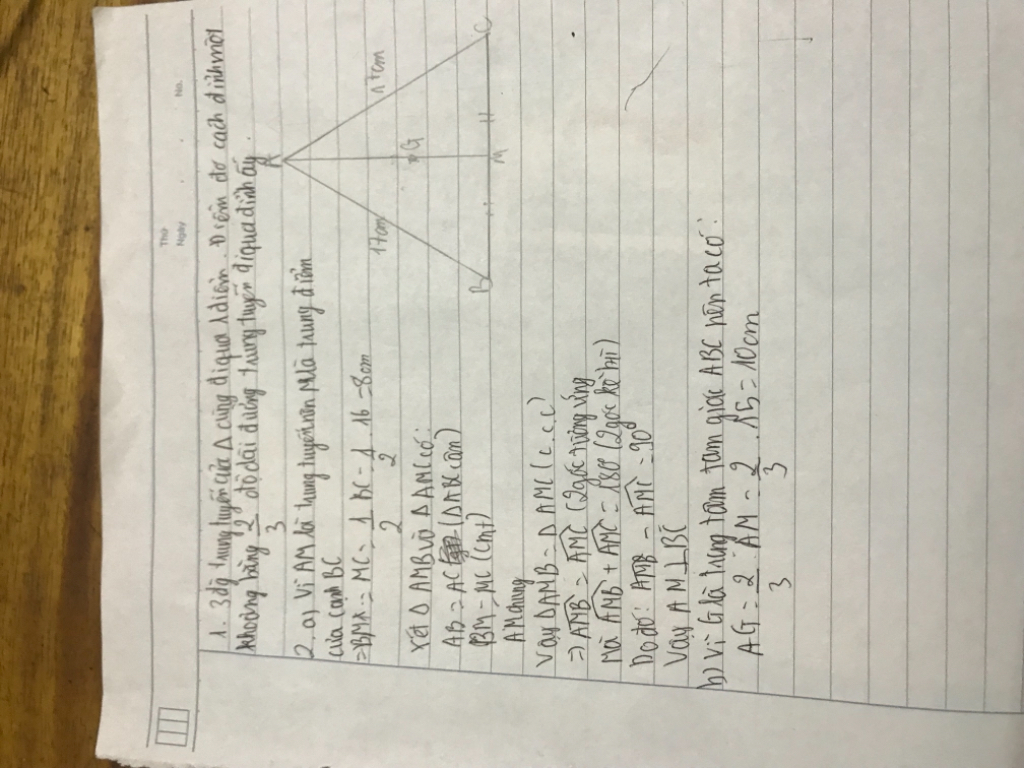 Thứ
Ngày
No.
1. 3 đg trung tuyến của Δ cùng đi qua 1 điểm. Điểm đó cách đỉnh một
khoảng bằng 2/3 độ dài đường trung tuyến đi qua đỉnh ấy.
2. a) Vì AM là trung tuyến nên M là trung điểm
của cạnh BC
= MC = 1/2 BC = 1/2 . 16 = 8cm
Xét Δ AMB và Δ AMC có:
AB = AC (Δ ABC cân)
BM = MC (cmt)
AM chung
Vậy Δ AMB = Δ AMC (c.c.c)
=> AMB = AMC (2 góc tương ứng
Mà AMB + AMC = 180 (2 góc kề bù)
Do đó: AMB = AMC = 90°
Vậy AM ⊥ BC
b) Vì G là trọng tam tam giác ABC nên ta có:
AG = 2/3 AM = 2/3 . 15 = 10cm
A
17cm
17cm
G
B
M
C